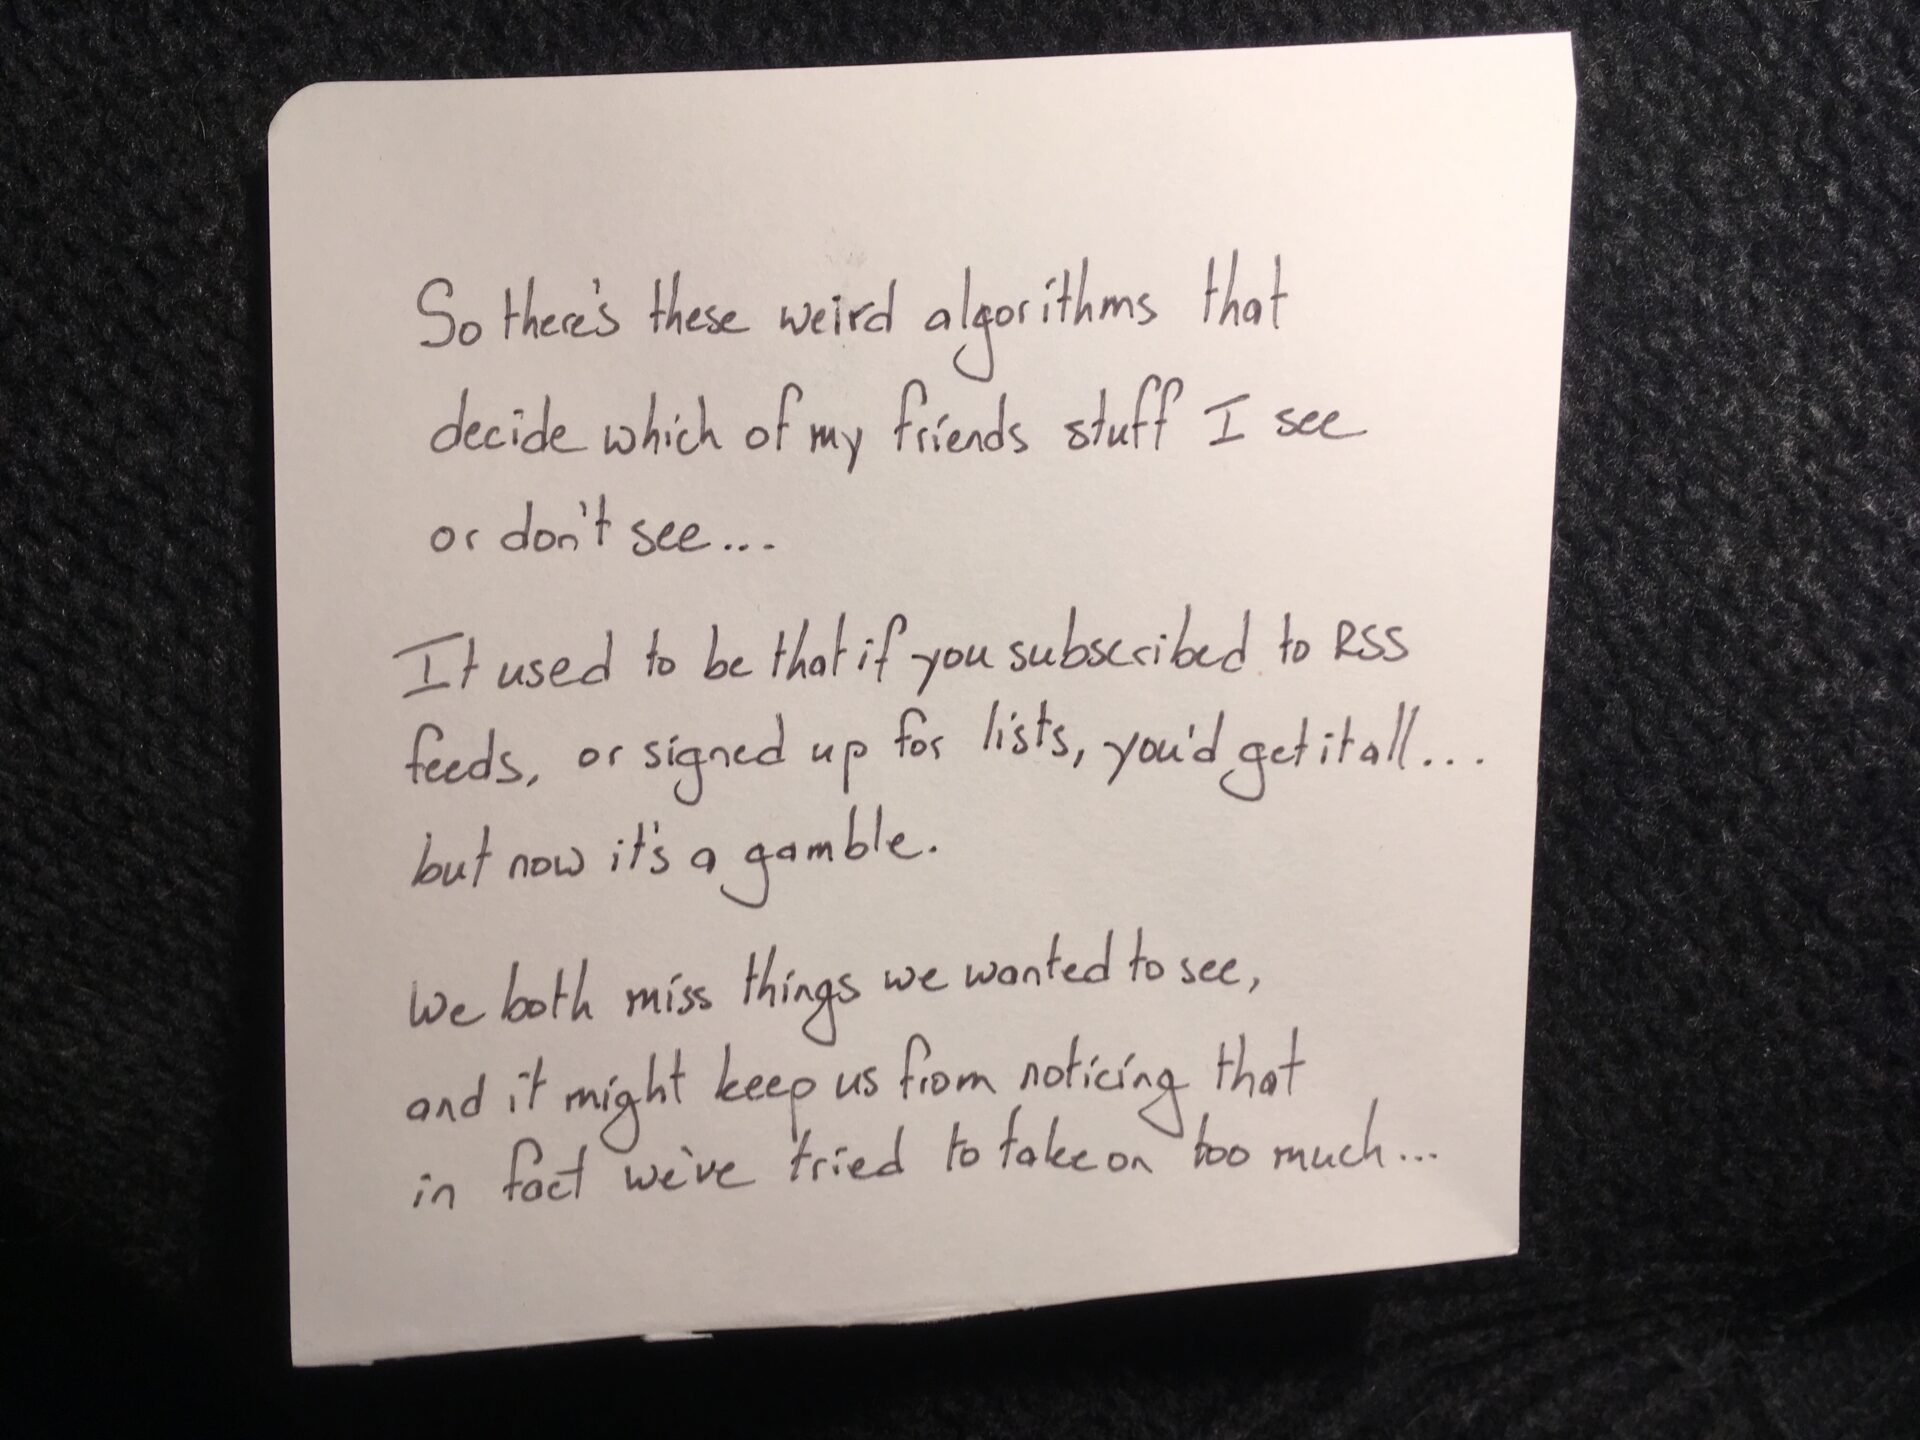 So there's these weird algorithms that
decide which of my friends stuff I see
or don't see...
It used to be that if you subscribed to RSS
feeds, or signed up for lists, you'd get it all...
but now it's a gamble.
We both miss things we wanted to see,
and it might keep us from noticing that
in fact we've tried to take on too much...